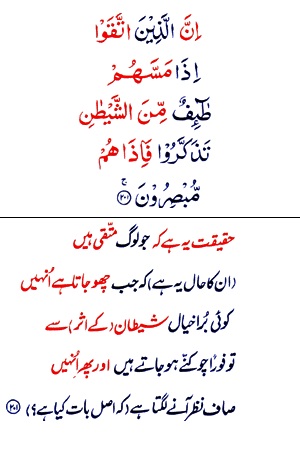 اِنَّ الَّذِیْنَ اتَّقَوْا
اِذَا مَسَّہُمْ
طٰٓئِفٌ مِّنَ الشَّیْطٰنِ
تَذَکَّرُوْا فَاِذَا ھُمْ
مُّبْصِرُوْنَ ۚ ﴿۲۰۱﴾
حقیقت یہ ہے کہ جو لوگ متّقی ہیں
(ان کا حال یہ ہے) کہ جب چھو جاتا ہے اُنہیں
کوئی بُرا خیال شیطان (کے اثر) سے
تو فوراً چوکنّے ہو جاتے ہیں اور پھر اُنہیں
صاف نظر آنے لگتا ہے (کہ اصل بات کیا ہے؟) ﴿۲۰۱﴾